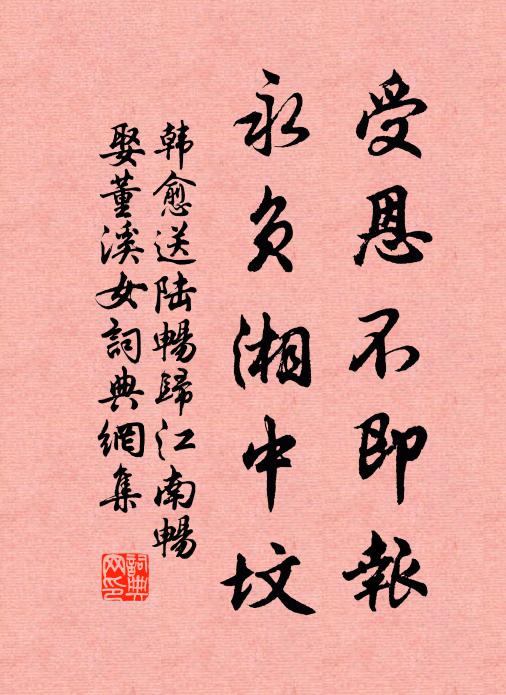 受恩不即報
永負湘中墳
韩愈送陆暢歸江南暢
娶董溪女詞典網集
詞典網印